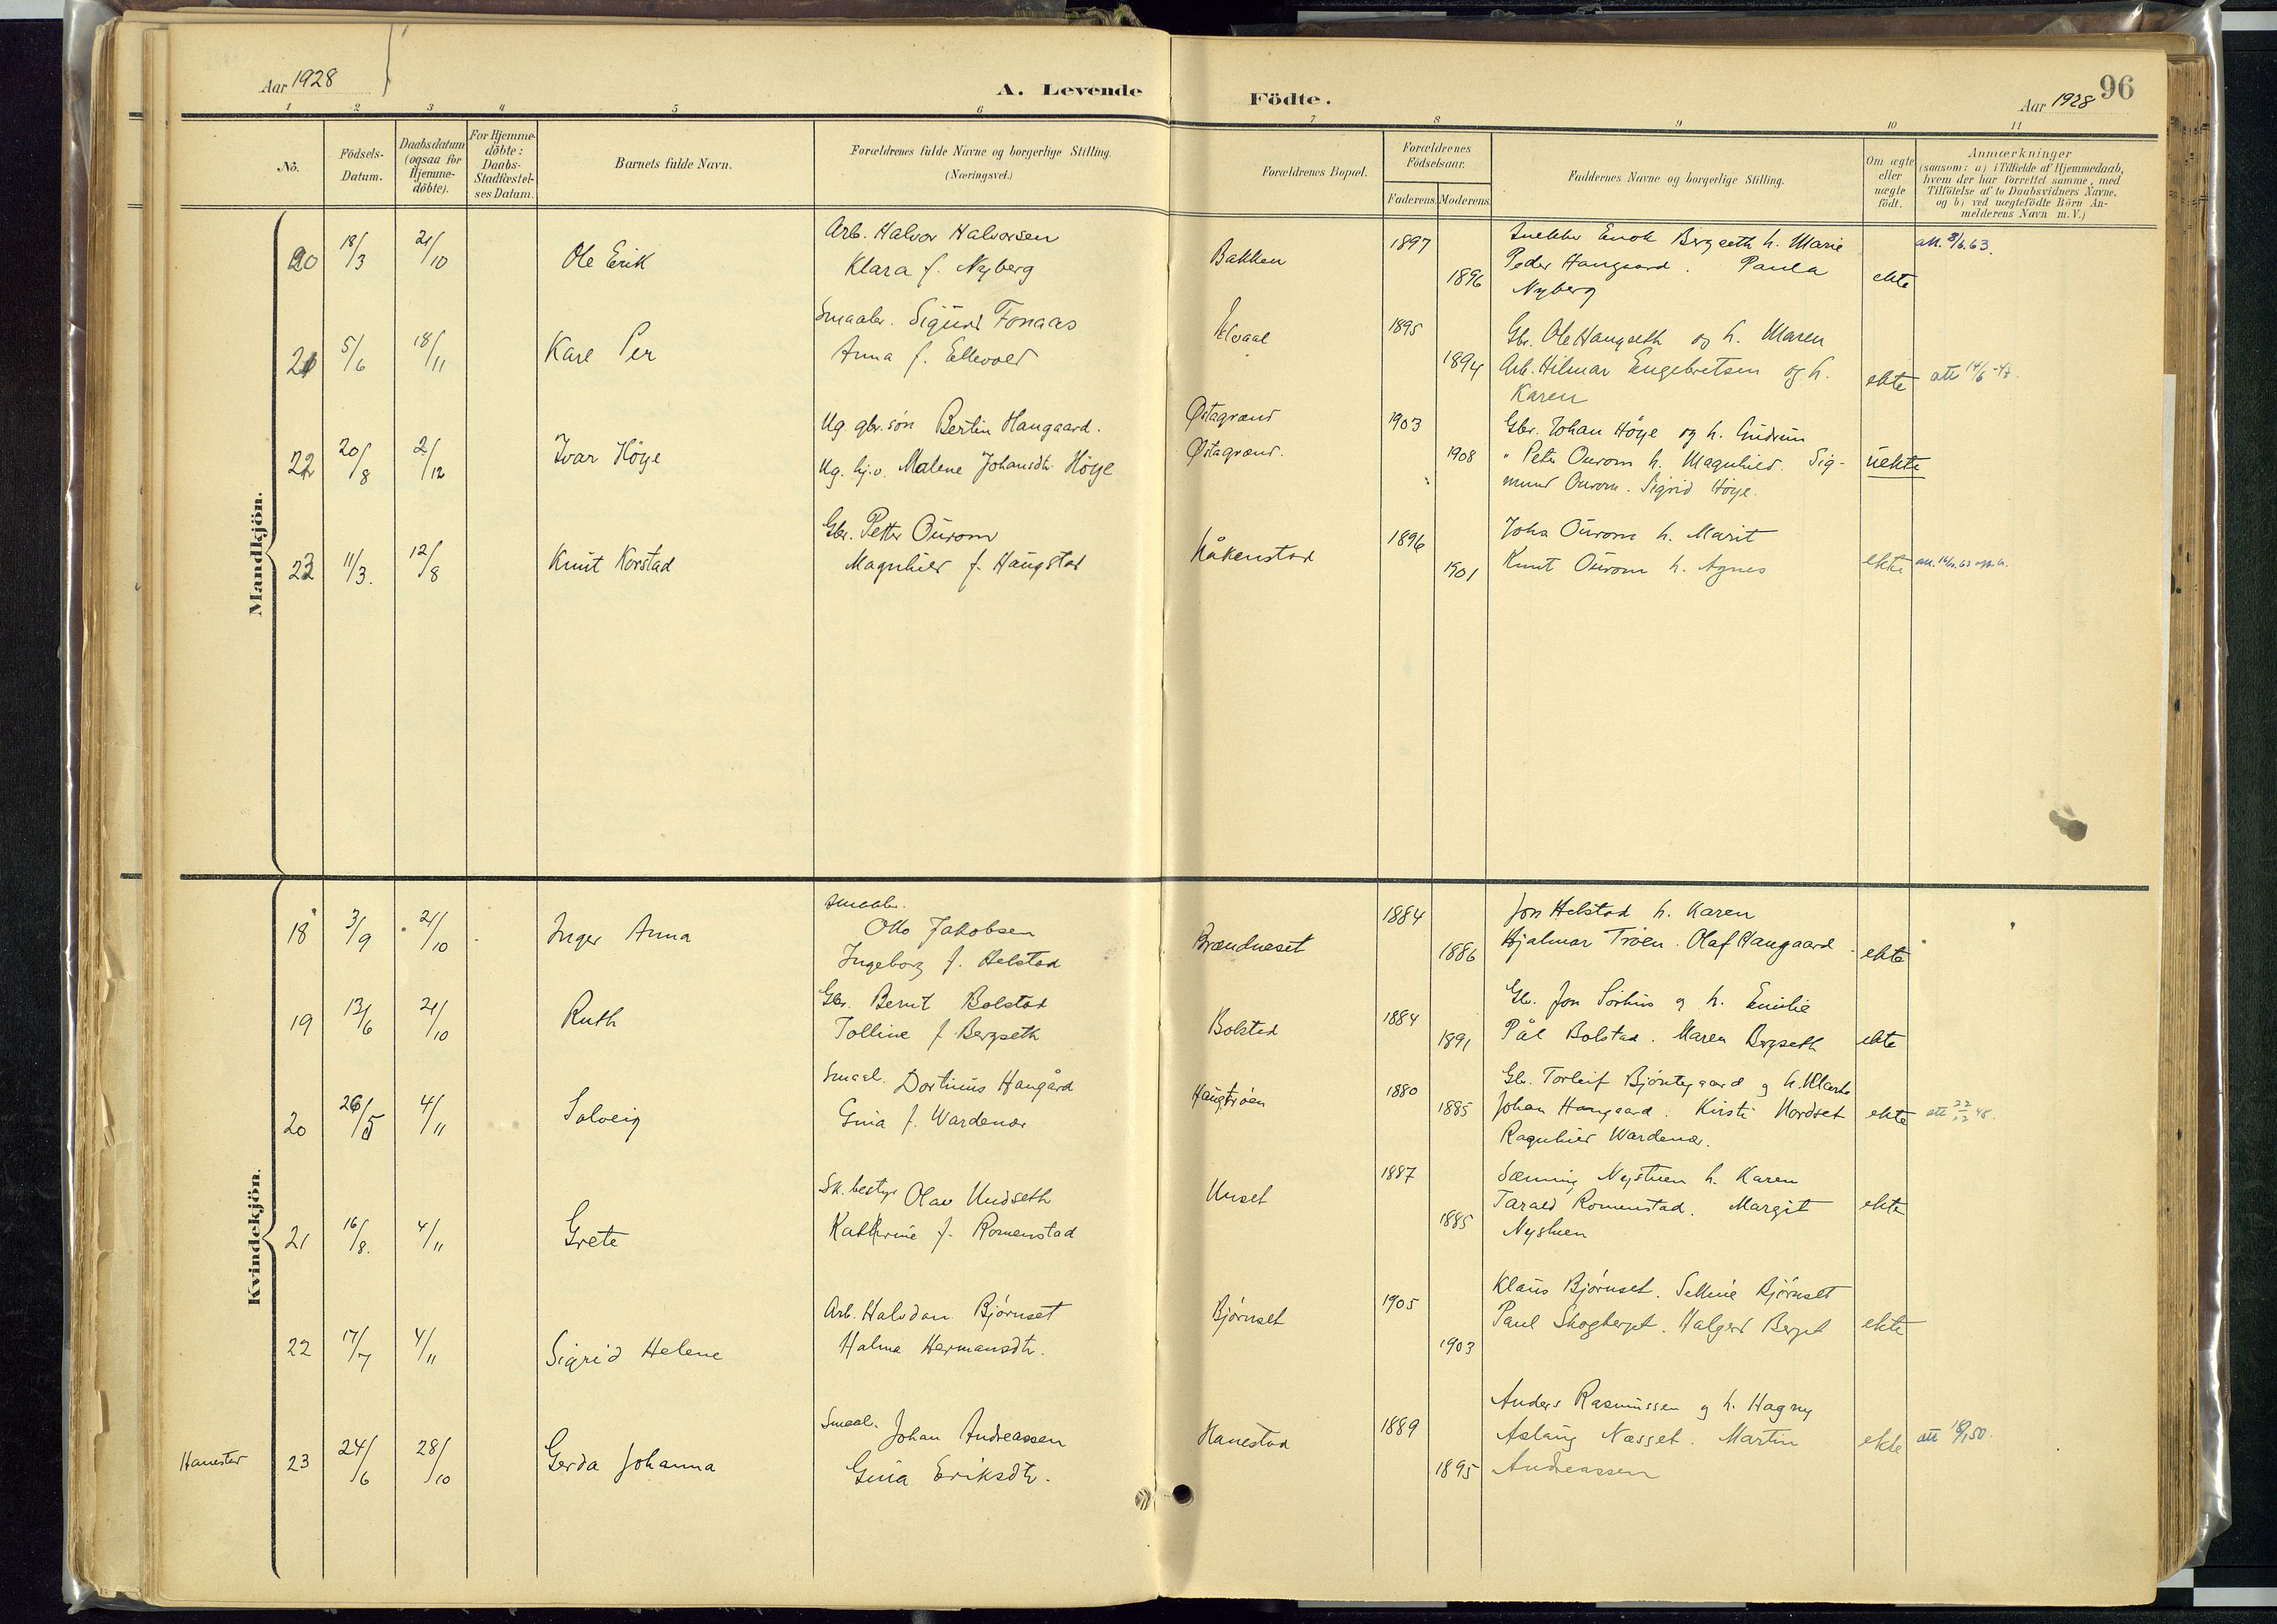 Aar 1928
A. Levende Födte.
Aar 1928
96
1 2 3 4 5 6 7 8 9 10 11
No.
Födsels-Datum.
Daabsdatum (ogsaa for Hjemme-döbte).
For Hjemme-döbte: Daabs-Stadfæstel-ses Datum.
Barnets fulde Navn.
Forældrenes fulde Navne og borgerlige Stilling.
(Næringsvei.)
Forældrenes Bopæl.
Forældrenes Födselsaar.
Faderens. Moderens.
Faddernes Navne og borgerlige Stilling.
Om ægte eller uægte födt.
Anmærkninger
(saasom: a) i Tilfælde af Hjemmedaab,
hvem der har forrettet samme, med
Tilföielse af to Daabsvidners Navne,
og b) ved uægtefödte Börn An-
melderens Navn m. V.)
Mandkjön.
20 18/3 21/10 Ole Erik
Arb. Halvor Halvorsen
Klara f. Nyberg
Bakken 1897 1896
Snekker Enok Bergseth h. Marie
Peder Haugaard. Paula
Nyberg
ekte
att. 8/6.63.
21 5/6 18/11 Kare Per
Smaabr. Sigurd Fonaas
Anna f. Ellevold
Elvaal 1895 1894
Gbr. Ole Haugseth og h. Maren
Arb. Hilmar Engebretsen og h.
Karen
ekte att 14/6-47.
22 20/8 2/12 Ivar Höye
Ug. gbr. søn Bertin Haugaard.
Ug. hj.v. Malene Johansdtr. Höye
Østagrend
Østagrend.
1903 1908
Gbr. Johan Höye og h. Gudrun
" Peter Ourom h. Magnhild. Sig-
mund Ourom. Sigrid Höye.
uekte
23 11/3. 12/8 Knut Korstad
Gbr. Petter Ourom
Magnhild f. Haugstad
Håkenstad 1896 1901
Johs Ourom h. Marit
Knut Ourom h. Agnes
ekte
Kvindekjön.
18 3/9 21/10 Inger Anna
Smaabr.
Otto Jakobsen
Ingeborg f. Helstad
Brændneset 1884 1886
Jon Helstad h. Karen
Hjalmar Trøen. Olaf Haugaard
ekte
19 13/6 21/10 Ruth
Gbr. Bernt Bolstad
Tolline f. Bergseth
Bolstad 1884 1891
Gbr. Jon Sörhus og h. Emilie
Pål Bolstad. Maren Bergseth
ekte
20 26/5 4/11 Solveig
Smaal. Dortinus Haugård
Gina f. Wardenær
Haugtrøen 1880 1885
Gbr. Torleif Bjöntegaard og h. Klara
Johan Haugaard. Kirsti Nordset
Ragnhild Wardenær.
ekte
21 16/8. 4/11 Grete
Sk. bestyr Olav Undseth
Kathrine f. Romenstad
Unset 1887 1885
Sæming Nystuen h. Karen
Tarald Romenstad. Margit
Nystuen
ekte
22 17/7 4/11 Sigrid Helene
Arb. Halvdan Björnset
Halma Hermansdtr.
Björnset 1905 1903
Klaus Björnset. Selline Björnset
Paul Skogberget. Halgerd Berget
ekte
Hanestad 23 24/6 28/10 Gerda Johanna
Smaal. Johan Andreassen
Gina Eriksdtr.
Hanestad 1889 1895
Anders Rasmussen og h. Hagny
Aslaug Næsset. Martin
Andreassen
ekte